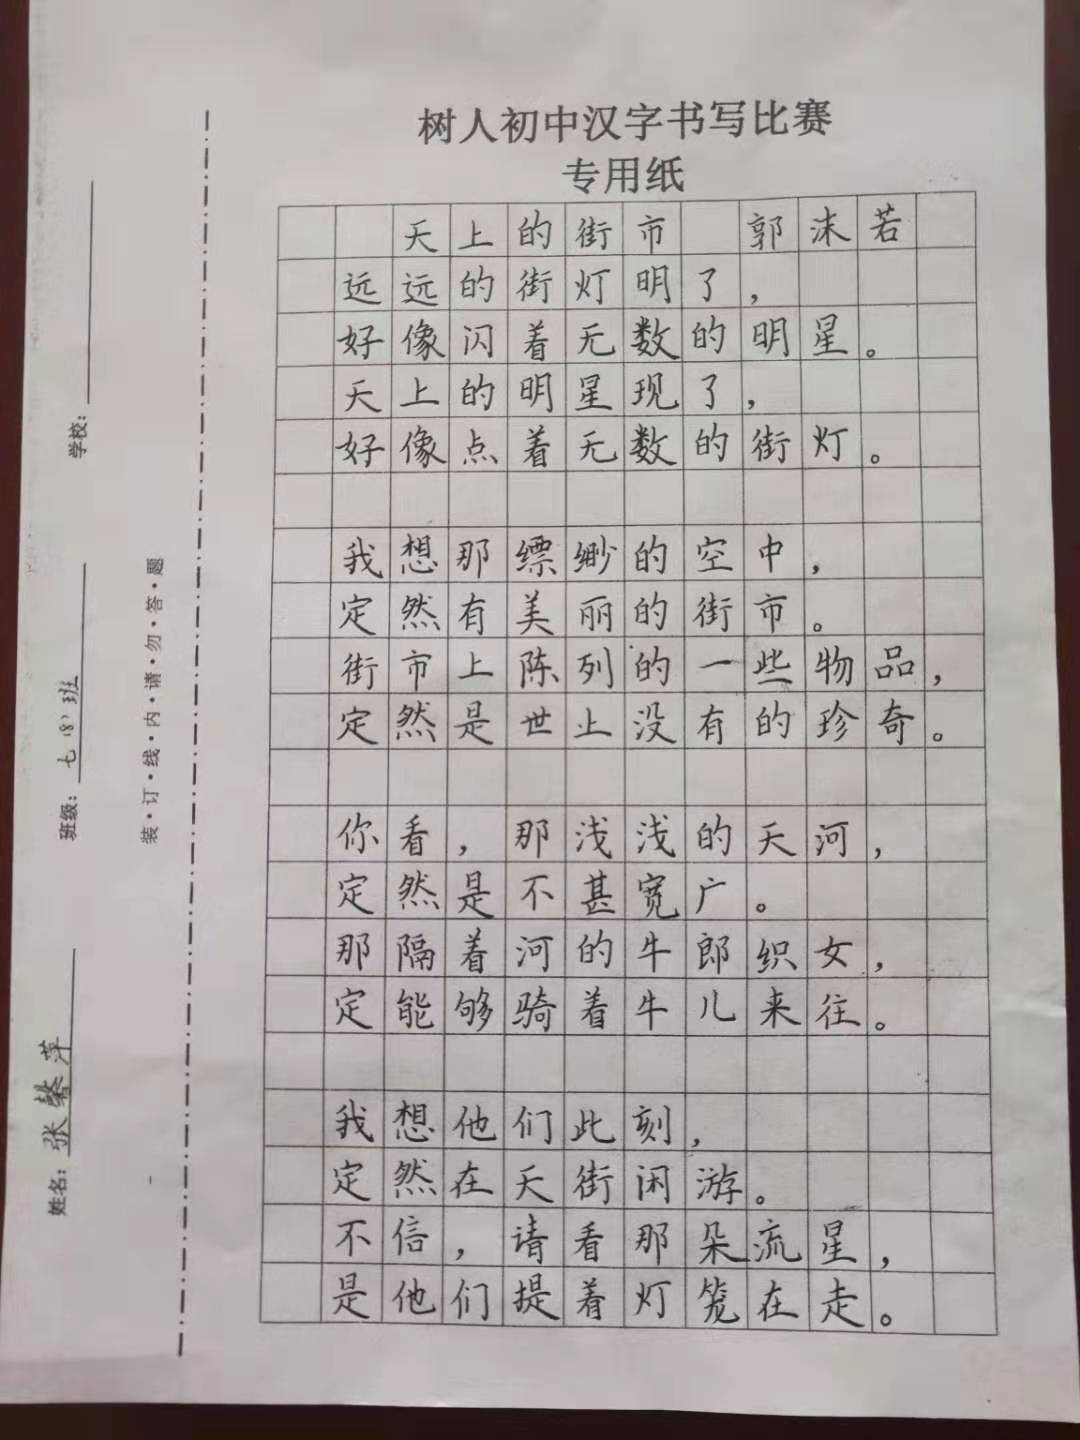 树人初中汉字书写比赛
专用纸
天上的街市 郭沫若
远远的街灯明了，
好像闪着无数的明星。
天上的明星现了，
好像点着无数的街灯。
我想那缥缈的空中，
定然有美丽的街市。
街市上陈列的一些物品，
定然是世上没有的珍奇。
你看，那浅浅的天河，
定然是不甚宽广。
那隔着河的牛郎织女，
定能够骑着牛儿来往。
我想他们此刻，
定然在天街闲游。
不信，请看那朵流星，
是他们提着灯笼在走。
学校：
班级：七(8)班
姓名：张馨萍
装·订·线·内·请·勿·答·题